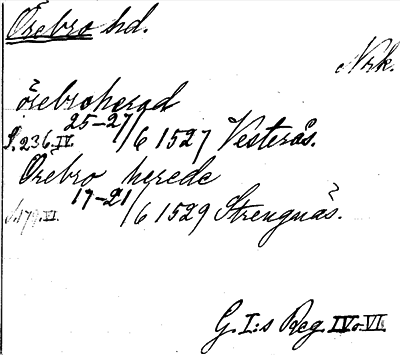 Örebro hd.
Nrk.
örebroherad
S. 236. IV. 25-27/6 1527 Vesterås.
Örebro herede
S. 179. VI. 17-21/6 1529 Strengnäs.
G. I:s Reg. IV o. VI.